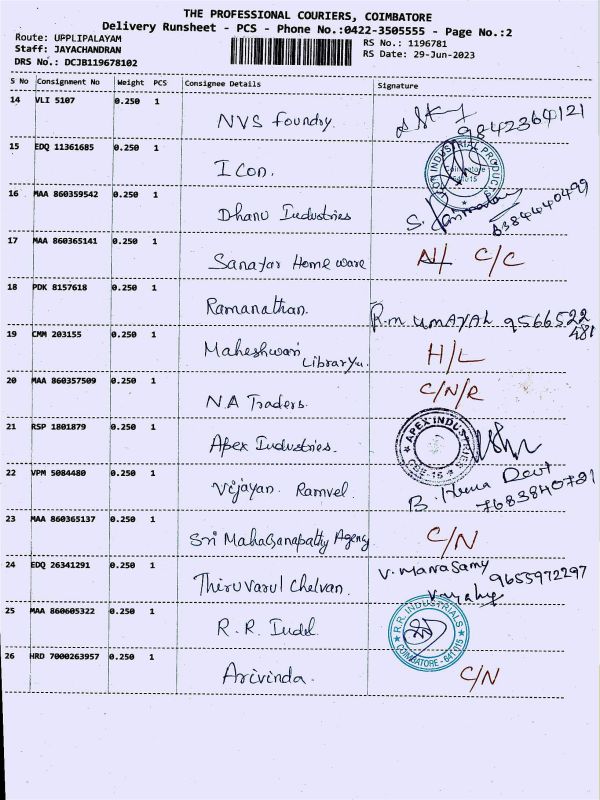 THE PROFESSIONAL COURIERS, COIMBATORE
Delivery Runsheet - PCS - Phone No.:0422-3505555 - Page No.:2
Route: UPPLIPALAYAM
RS No.: 1196781
Staff: JAYACHANDRAN
RS Date: 29-Jun-2023
DRS No.: DCJB119678102
S No Consignment No Weight PCS Consignee Details Signature
14 VLI 5107 0.250 1 NVS foundry 9842364121
15 EDQ 11361685 0.250 1 Icon. ICON INDUSTRIAL PRODUCTS Coimbatore
16 MAA 860359542 0.250 1 Dhanu Industries 8384440499
17 MAA 860365141 0.250 1 Sanayar Home ware C/C
18 PDK 8157618 0.250 1 Ramanathan. R.m UMAYAL 9566522
481
19 CMM 203155 0.250 1 Maheshwari Library. H/L
20 MAA 860357509 0.250 1 N.A Traders. C/N/R
21 RSP 1801879 0.250 1 Apex Industries. APEX INDUSTRIES CBE-15
22 VPM 5084480 0.250 1 Vijayan. Ramvel. B. Hema Devi
7683840781
23 MAA 860365137 0.250 1 Sri Mahaganapathy Agency C/N
24 EDQ 26341291 0.250 1 Thiruvarul Chelvan. V. Manasamy
9655972297
25 MAA 860605322 0.250 1 R.R. Indl. R.R. INDUSTRIALS COIMBATORE - 641 015
26 HRD 7000263957 0.250 1 Arivinda. C/N